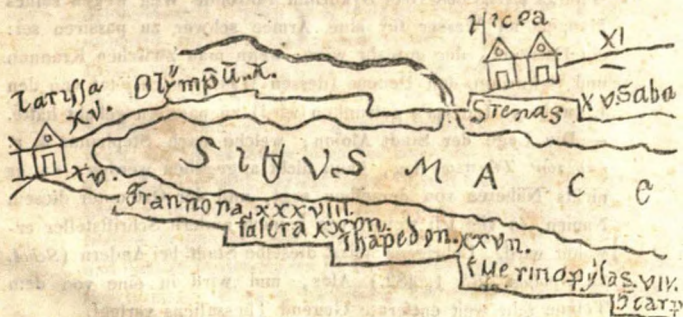 Hicea
XI
Larissa
XV.
Olympū. X.
Stenas
XV. Saba
SINVS MACE
XV.
Crannona. XXXVIII.
falera XXXVII.
thapedon. XXVII.
thermopylas. VIIII.
Scarp